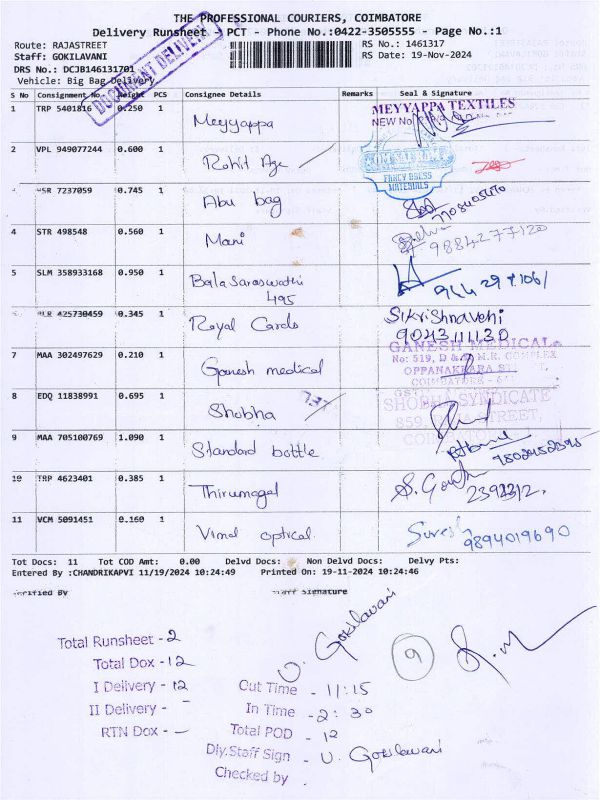 THE PROFESSIONAL COURIERS, COIMBATORE
Delivery Runsheet - PCT - Phone No.:0422-3505555 - Page No.:1
Route: RAJASTREET
RS No.: 1461317
Staff: GOKILAVANI
RS Date: 19-Nov-2024
DRS No.: DCJB146131701
Vehicle: Big Bag Delivery
DOCUMENT DELIVERY
S No Consignment No. Weight PCS Consignee Details Remarks Seal & Signature
1 TRP 5401816 0.250 1 Meyyappa MEYYAPPA TEXTILES
NEW No
2 VPL 949077244 0.600 1 Rohit Age
FANCY DRESS
MATERIALS
HSR 7237059 0.745 1 Abu bag
4 STR 498548 0.560 1 Mani 9884277120
5 SLM 358933168 0.950 1 Balasaraswathi
495
425730459 0.345 1 Royal Cards Srikrishnaveni
9043111130
7 MAA 302497629 0.210 1 Ganesh medical GANESH MEDICAL
No: 519, D & D, M.R. COMPLEX
OPPANAKKARA ST
COIMBATORE - 6
GST
8 EDQ 11838991 0.695 1 Shobha SHOBHA SYNDICATE
859, STREET,
9 MAA 705100769 1.090 1 Standard bottle
10 TRP 4623401 0.385 1 Thirumagal
11 VCM 5091451 0.160 1 Vimal optical. Suresh
9894019690
Tot Docs: 11 Tot COD Amt: 0.00 Delvd Docs: Non Delvd Docs: Delvy Pts:
Entered By :CHANDRIKAPVI 11/19/2024 10:24:49 Printed On: 19-11-2024 10:24:46
Verified By Staff Signature
U. Gokilavani
9
Total Runsheet - 2
Total Dox - 12
I Delivery - 12
II Delivery - -
RTN Dox - -
Cut Time - 11:15
In Time - 2:30
Total POD - 12
Dly.Staff Sign - U. Gokilavani
Checked by